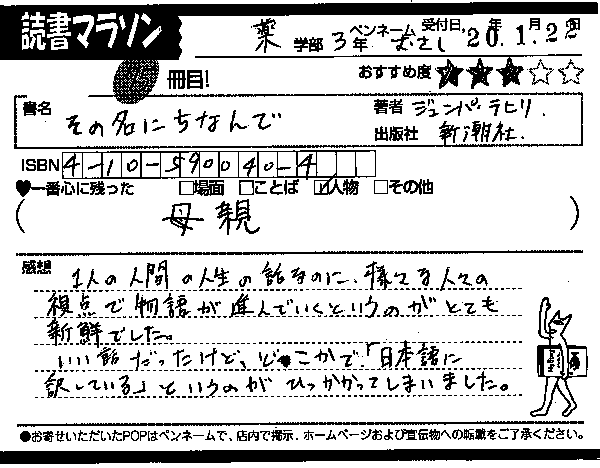 読書マラソン
薬 学部 3年 ペンネーム むさし 受付日 20年.1月.22日
冊目!
おすすめ度 ★★★☆☆
書名 その名にちなんで
著者 ジュンパ・ラヒリ.
出版社 新潮社.
ISBN 4-10-590040-4
♥一番心に残った □場面 □ことば ☑人物 □その他
( 母親 )
感想 1人の人間の人生の話なのに、様々な人々の
視点で物語が進んでいくというのがとても
新鮮でした。
いい話だったけど、どこかで「日本語に
訳している」というのがひっかかってしまいました。
●お寄せいただいたPOPはペンネームで、店内で掲示、ホームページおよび宣伝物への転載をご了承ください。